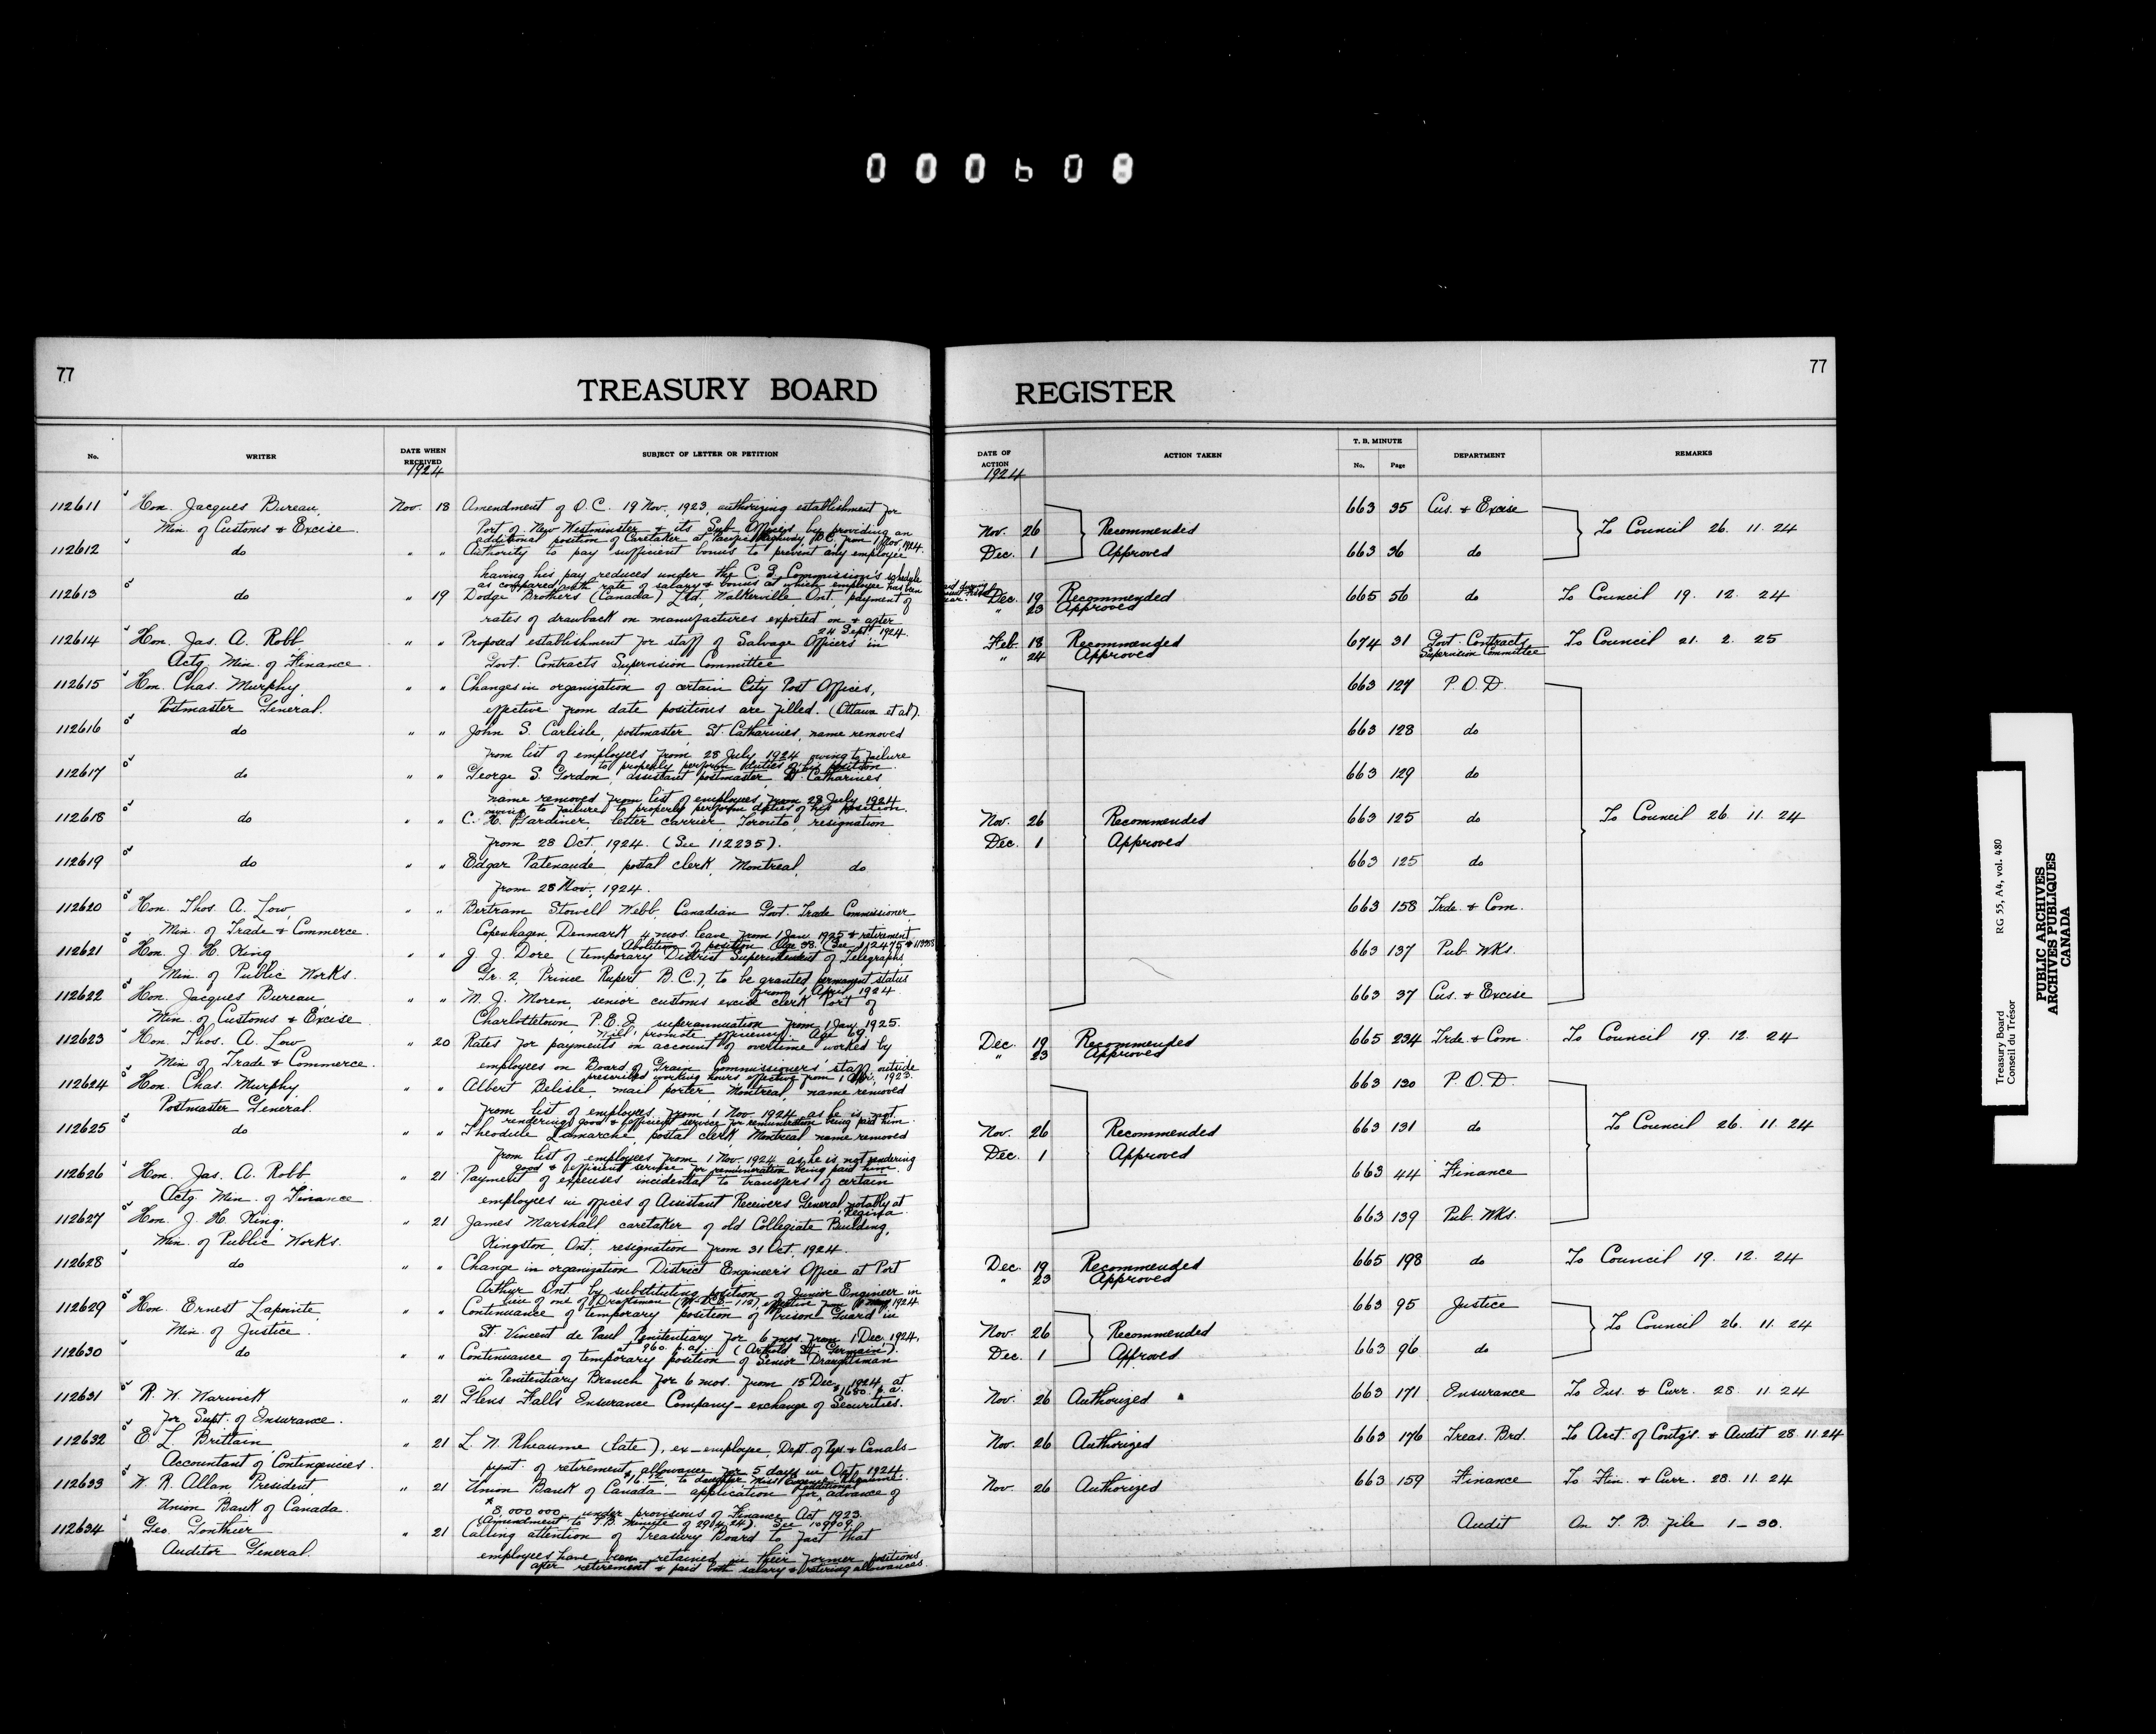 000608
77
TREASURY BOARD
No.
WRITER
DATE WHEN RECEIVED
1924
SUBJECT OF LETTER OR PETITION
112611 Hon. Jacques Bureau, Nov. 18 Amendment of O.C. 19 Nov. 1923, authorizing establishment for
Min. of Customs & Excise Port of New Westminster & its Sub Offices, by providing an
additional position of Caretaker at Pacific Highway, B.C. from 1 Nov. 1924.
112612 do " " Authority to pay sufficient bonus to prevent any employee
having his pay reduced under the C.S. Commission's schedule
as compared with rate of salary & bonus at which employee has been
112613 do " 19 Dodge Brothers (Canada) Ltd, Walkerville, Ont, payment of
rates of drawback on manufactures exported on & after
24 Sept. 1924.
112614 Hon. Jas. A. Robb " " Proposed establishment for staff of Salvage Officers in
Actg. Min. of Finance. Govt. Contracts Supervision Committee
112615 Hon. Chas. Murphy " " Changes in organization of certain City Post Offices,
Postmaster General. effective from date positions are filled. (Ottawa et al).
112616 do " " John S. Carlisle, postmaster, St. Catharines, name removed
from list of employees from 28 July 1924 owing to failure
to properly perform duties of his position.
112617 do " " George S. Gordon, assistant postmaster St. Catharines
name removed from list of employees from 28 July 1924
owing to failure to properly perform duties of his position.
112618 do " " C. H. Gardiner, letter carrier, Toronto, resignation
from 28 Oct. 1924. (See 112235).
112619 do " " Edgar Patenaude, postal clerk, Montreal, do
from 28 Nov. 1924.
112620 Hon. Thos. A. Low, " " Bertram Stowell Webb, Canadian Govt. Trade Commissioner
Min. of Trade & Commerce. Copenhagen Denmark, 4 mos. leave from 1 Jan. 1925 & retirement
Abolition of position Age 38. (See 112475 &
112621 Hon. J. H. King " " J. J. Dore (temporary District Superintendent of Telegraphs,
Min. of Public Works. Gr. 2, Prince Rupert B.C.), to be granted permanent status
from 1 April 1924
112622 Hon. Jacques Bureau, " " M. J. Moren, senior customs excise clerk Port of
Min. of Customs & Excise Charlottetown, P.E.I. superannuation from 1 Jan. 1925.
Will promote efficiency. Age 69.
112623 Hon. Thos. A. Low " 20 Rates for payments on account of overtime worked by
Min. of Trade & Commerce. employees on Board of Grain Commissioner's staff outside
prescribed working hours effective from 1 1923.
112624 Hon. Chas. Murphy " " Albert Belisle, mail porter, Montreal, name removed
Postmaster General. from list of employees from 1 Nov. 1924, as he is not
rendering good & efficient service for remuneration being paid him.
112625 do " " Theodule Lamarche, postal clerk, Montreal name removed
from list of employees from 1 Nov. 1924 as he is not rendering
good & efficient service for remuneration being paid him.
112626 Hon. Jas. A. Robb " 21 Payment of expenses incidental to transfers of certain
Actg. Min. of Finance. employees in offices of Assistant Receivers General notably at
Regina
112627 Hon. J. H. King. " 21 James Marshall caretaker of old Collegiate Building,
Min. of Public Works. Kingston, Ont, resignation from 31 Oct. 1924.
112628 do " " Change in organization District Engineer's Office at Port
Arthur Ont. by substituting position of Junior Engineer in
lieu of one of Draftsman
112629 Hon. Ernest Lapointe, " " Continuance of temporary position of Prison Guard in
Min. of Justice. St. Vincent de Paul Penitentiary for 6 mos. from 1 Dec. 1924,
at 960. p.a. (St Germain).
112630 do " " Continuance of temporary position of Senior Draughtsman
in Penitentiary Branch for 6 mos. from 15 Dec. 1924 at
$1680. p.a.
112631 R. W. Warwick " 21 Glens Falls Insurance Company - exchange of Securities.
for Supt. of Insurance.
112632 E. L. Brittain " 21 L. N. Rheaume (late), ex-employee, Dept. of Rys & Canals -
Accountant of Contingencies. pymt. of retirement allowance for 5 days in Oct. 1924
to daughter Miss Eugenie Rheaume.
112633 W. R. Allan, President, " 21 Union Bank of Canada - application for additional advance of
Union Bank of Canada. $8,000,000 under provisions of Finance Act 1923.
(Amendment to T.B. Minute of 29.4.24). See 109909.
112634 Geo. Gonthier " 21 Calling attention of Treasury Board to fact that
Auditor General. employees have been retained in their former positions
after retirement & paid both salary & retiring allowances.
77
REGISTER
DATE OF ACTION
1924
ACTION TAKEN
T. B. MINUTE
No.
Page
DEPARTMENT
REMARKS
663 35 Cus. & Excise
Nov. 26 Recommended To Council 26. 11. 24
Dec. 1 Approved 663 36 do
Dec. 19 Recommended 665 56 do To Council 19. 12. 24
" 23 Approved
Feb. 18 Recommended 674 31 Govt. Contracts Supervision Committee To Council 21. 2. 25
" 24 Approved
663 127 P.O.D.
663 128 do
663 129 do
Nov. 26 Recommended 663 125 do To Council 26. 11. 24
Dec. 1 Approved
663 125 do
663 158 Trde. & Com.
663 137 Pub. Wks.
663 37 Cus. & Excise
Dec. 19 Recommended 665 234 Trde. & Com. To Council 19. 12. 24
" 23 Approved
663 130 P.O.D.
Nov. 26 Recommended 663 131 do To Council 26. 11. 24
Dec. 1 Approved
663 44 Finance
663 139 Pub. Wks.
Dec. 19 Recommended 665 198 do To Council 19. 12. 24
" 23 Approved
663 95 Justice
Nov. 26 Recommended To Council 26. 11. 24
Dec. 1 Approved 663 96 do
Nov. 26 Authorized 663 171 Insurance To Ins. & Curr. 28. 11. 24
Nov. 26 Authorized 663 176 Treas. Brd. To Acct. of Contg's. & Audit 28. 11. 24
Nov. 26 Authorized 663 159 Finance To Fin. & Curr. 28. 11. 24
Audit On T. B. file 1-30.
Treasury Board
Conseil du Trésor
RG 55, A4, vol. 480
PUBLIC ARCHIVES
ARCHIVES PUBLIQUES
CANADA